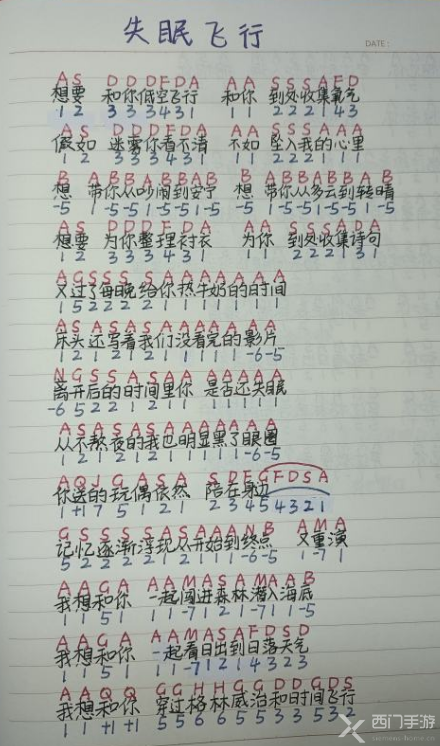 失眠飞行
DATE:
A S D D D F D A A A S S S A F D
想要 和你低空飞行 和你 到处收集氧气
1 2 3 3 3 4 3 1 1 1 2 2 2 1 4 3
A S D D D F D A A A S S S A A A
假如 迷雾你看不清 不如 坠入我的心里
1 2 3 3 3 4 3 1 1 1 2 2 2 1 1 1
B A B B A B B A B B A B B A B B A B
想 带你从吵闹到安宁 想 带你从多云到转晴
-5 1 -5 -5 1 -5 -5 1 -5 -5 1 -5 -5 1 -5 -5 1 -5
想要 为你整理衬衣 为你 到处收集诗句
1 2 3 3 3 4 3 1 1 1 2 2 2 1 3 1
A G S S S S A A A A A A A A
又过了每晚给你热牛奶的时间
1 5 2 2 2 2 1 1 1 1 1 1 1
床头还写着我们没看完的影片
离开后的时间里你 是否还失眠
从不熬夜的我也明显黑了眼圈
A Q J G A S A S D F G F D S A
你送的玩偶依然 陪在身边
1 +1 7 5 1 2 1 2 3 4 5 4 3 2 1
记忆逐渐浮现从开始到终点 又重演
A A G A A A M A S A M A A B
我想和你 一起闯进森林潜入海底
1 1 5 1 1 1 -7 1 2 1 -7 1 1 -5
A A G A A A M A S A F D S D
我想和你 一起看日出到日落天气
1 1 5 1 1 1 -7 1 2 1 4 3 2 3
A A Q Q G G H H G G D D G D S
我想和你 穿过格林威治和日时间飞行
1 1 +1 +1 5 5 6 6 5 5 3 3 5 3 2
西门手游